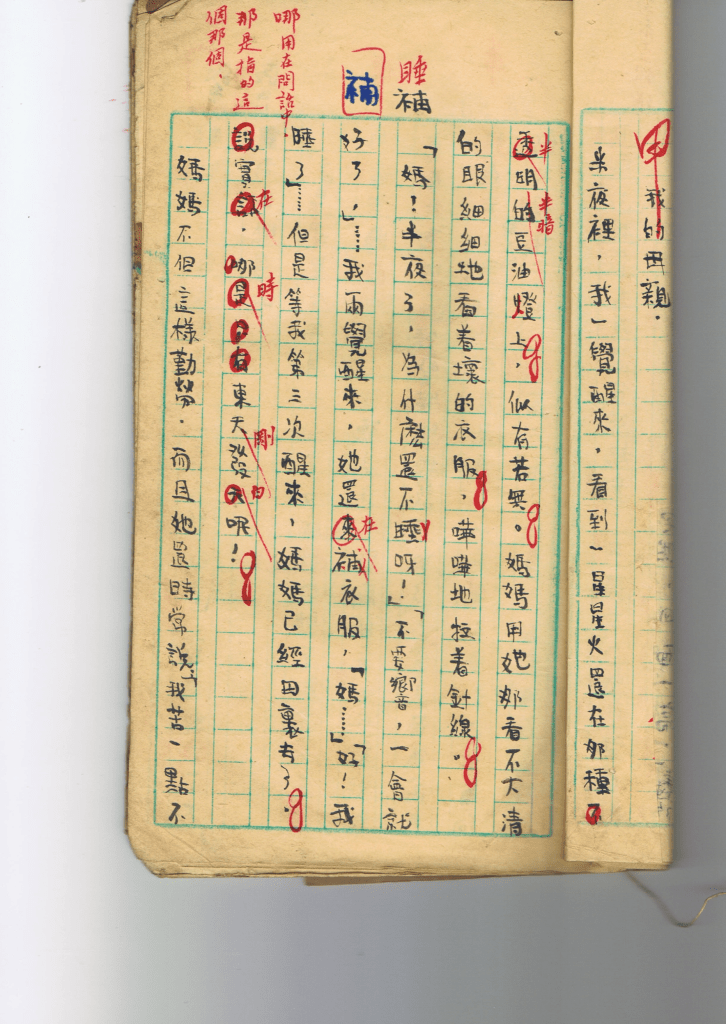 甲
我的母親.
半夜裡，我一覺醒來，看到一星星火還在那種不
透明的豆油燈上，似有若無。媽媽用她那看不大清
半 半暗
的眼細細地看着壞的衣服，嘩嘩地拉着針線。
「媽！半夜了，為什麽還不睡呀！」「不要響音，一會就
睡
補
補
好了，」……我兩覺醒來，她還來補衣服，「媽……」「好！我
在
睡了」……但是等我第三次醒來，媽媽已經田裏去了。
哪用在問話中.
那是指的這
個那個.
說實話，哪是 東天發 呢！
在
時
剛
白
媽媽不但這樣勤勞.而且她還時常說「我苦一點不